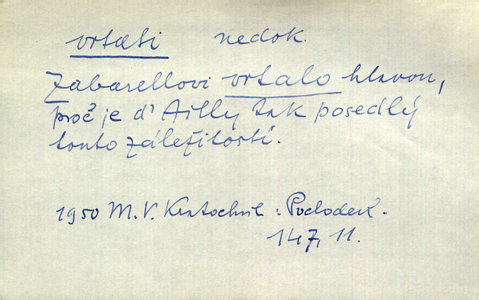 vrtati nedok.
Zabarellovi vrtalo hlavou,
proč je d'Ailly tak posedlý
touto záležitostí.
1950 M. V. Kratochvíl: Podobek.
147, 11.